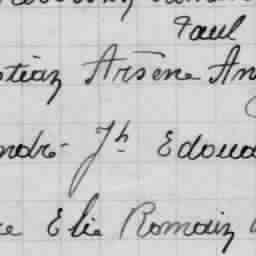 Paul
stian Arsène An
ndre Jh Edoua
ce Elie Romain